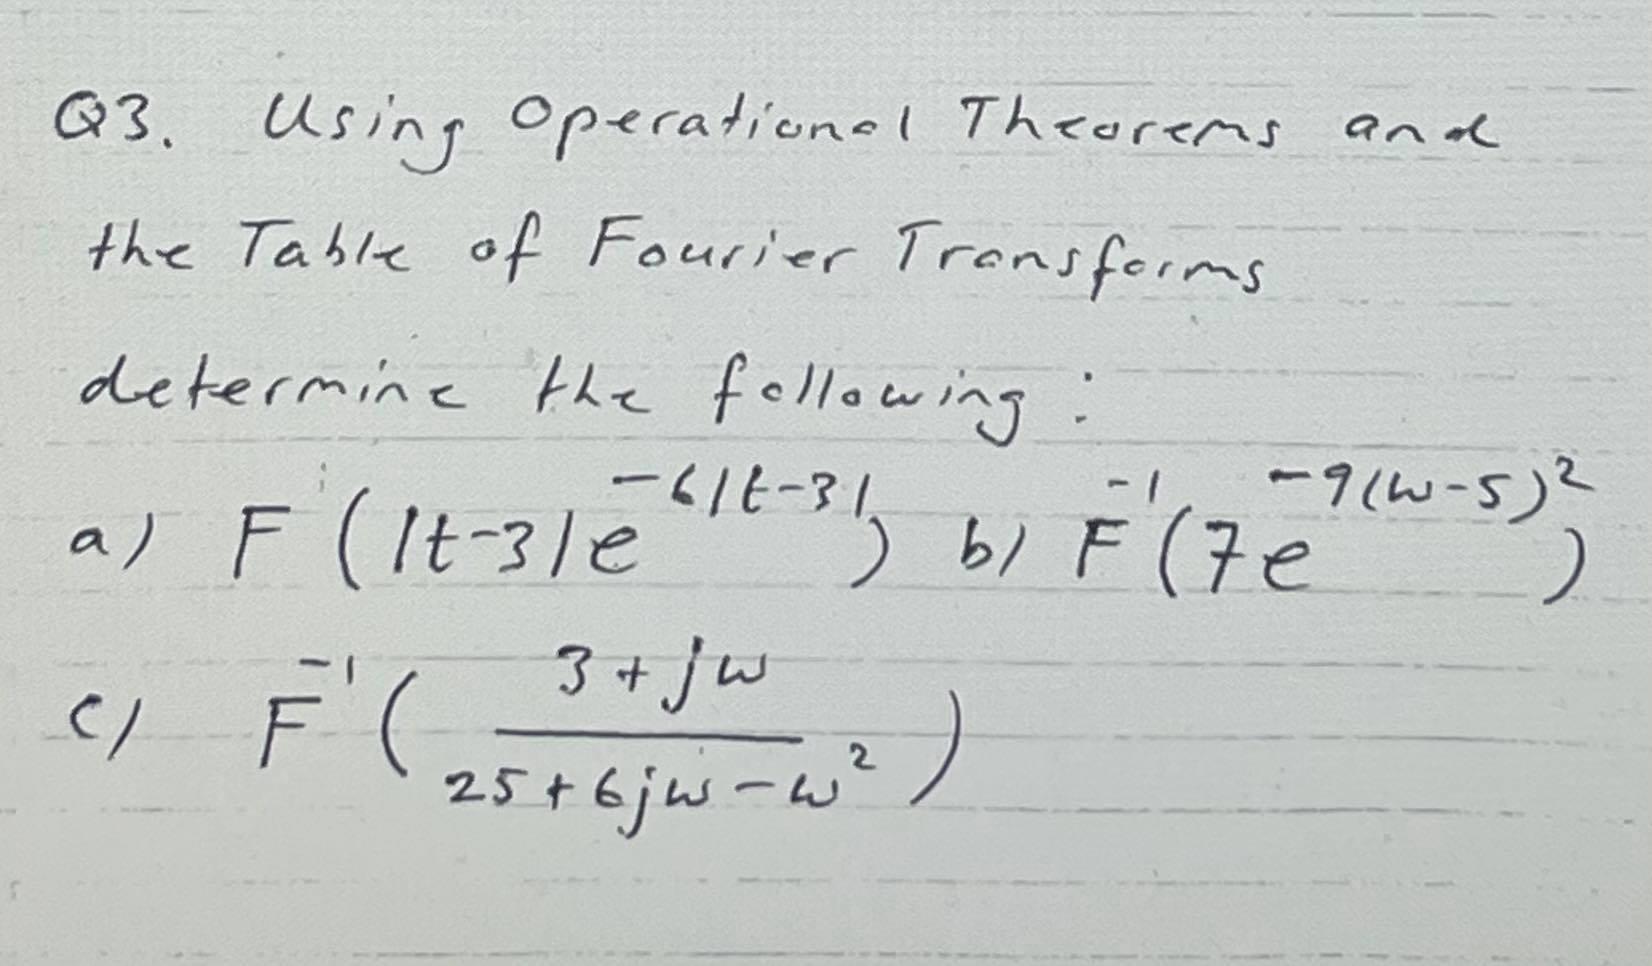 Q3. Using Operational Theorems and
the Table of Fourier Transforms
determine the following:
a) F(|t-3|e^{-6|t-3|}) b) F^{-1}(7e^{-9(w-5)^2})
c) F^{-1}(\frac{3+jw}{25+6jw-w^2})